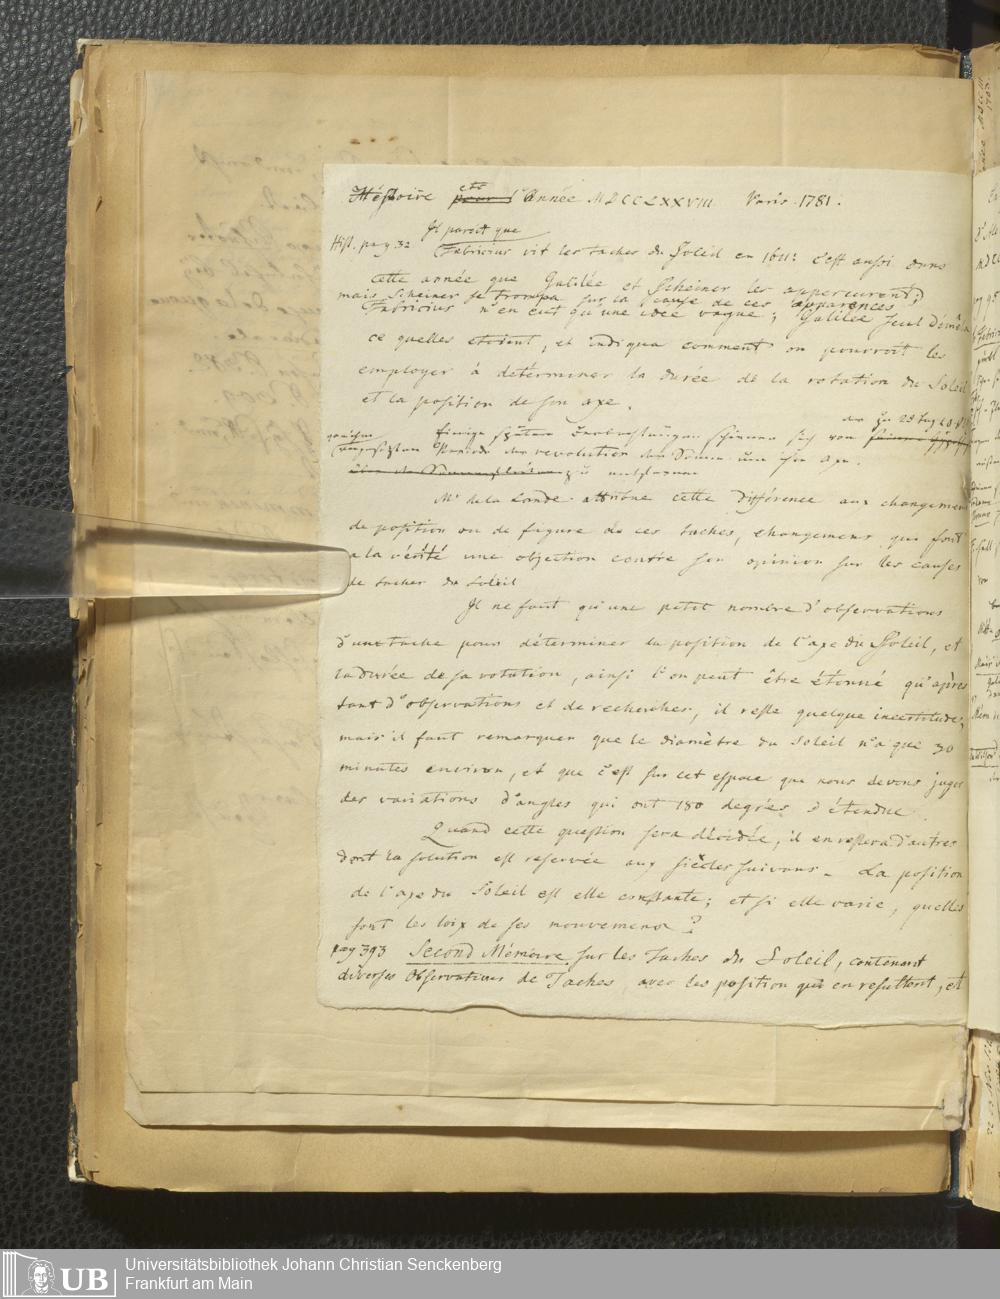 Histoire pour etc l'Année MDCCLXXVIII Paris 1781.
Il paroit que
Hist. pag. 32 Fabricius vit les taches du Soleil en 1611: c'est aussi dans
cette année que Galilée et Scheiner les apperçurent;
mais Scheiner se trompa sur la cause de ces apparences
Fabricius n'en eut qu'une idée vague; Galilée seul démêla
ce quelles etoient, et indiqua comment on pourroit les
employer à déterminer la durée de la rotation du Soleil
et la position de son axe.
Einige spätere Beobachtungen scheinen sich von
Periode der revolution der Sonne um ihre Axe.
zu entfernen
Mr de la Lande attribue cette différence aux changemens
de position ou de figure de ces taches, changemens qui font
a la vérité une objection contre son opinion sur les causes
de taches du Soleil
Il ne faut qu'une petit nombre d'observations
d'une tache pour déterminer la position de l'axe du Soleil, et
la durée de sa rotation, ainsi l'on peut être étonné qu'après
tant d'observations et de recherches, il reste quelque incertitude;
mais il faut remarquer que le diamètre du Soleil n'a que 30
minutes environ, et que c'est sur cet espace que nous devons juger
des variations d'angles qui ont 180 degrés d'étendue.
Quand cette question sera décidée, il en restera d'autres
dont la solution est reservée aux siècles suivans. La position
de l'axe du Soleil est elle constante; et si elle varie, quelles
sont les loix de ses mouvemens?
pag 393 Second Mémoire sur les Taches du Soleil, contenant
diverses Observations de Taches avec les position qui en resultent, et
UB
Universitätsbibliothek Johann Christian Senckenberg
Frankfurt am Main